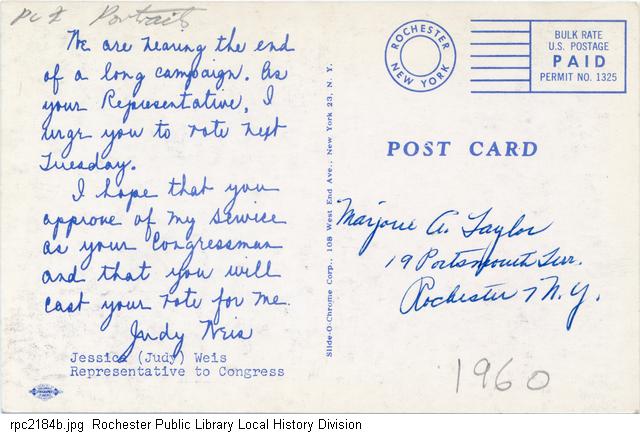 Pc I Portraits
We are nearing the end
of a long campaign. As
your Representative, I
urge you to vote next
Tuesday.
I hope that you
approve of my service
as your Congressman
and that you will
cast your vote for me.
Judy Weis
Jessica (Judy) Weis
Representative to Congress
Slide-O-Chrome Corp., 108 West End Ave., New York 23, N. Y.
ROCHESTER
NEW YORK
BULK RATE
U.S. POSTAGE
PAID
PERMIT NO. 1325
POST CARD
Marjorie A. Taylor
19 Portsmouth Ter.
Rochester 7 N.Y.
1960
rpc2184b.jpg Rochester Public Library Local History Division